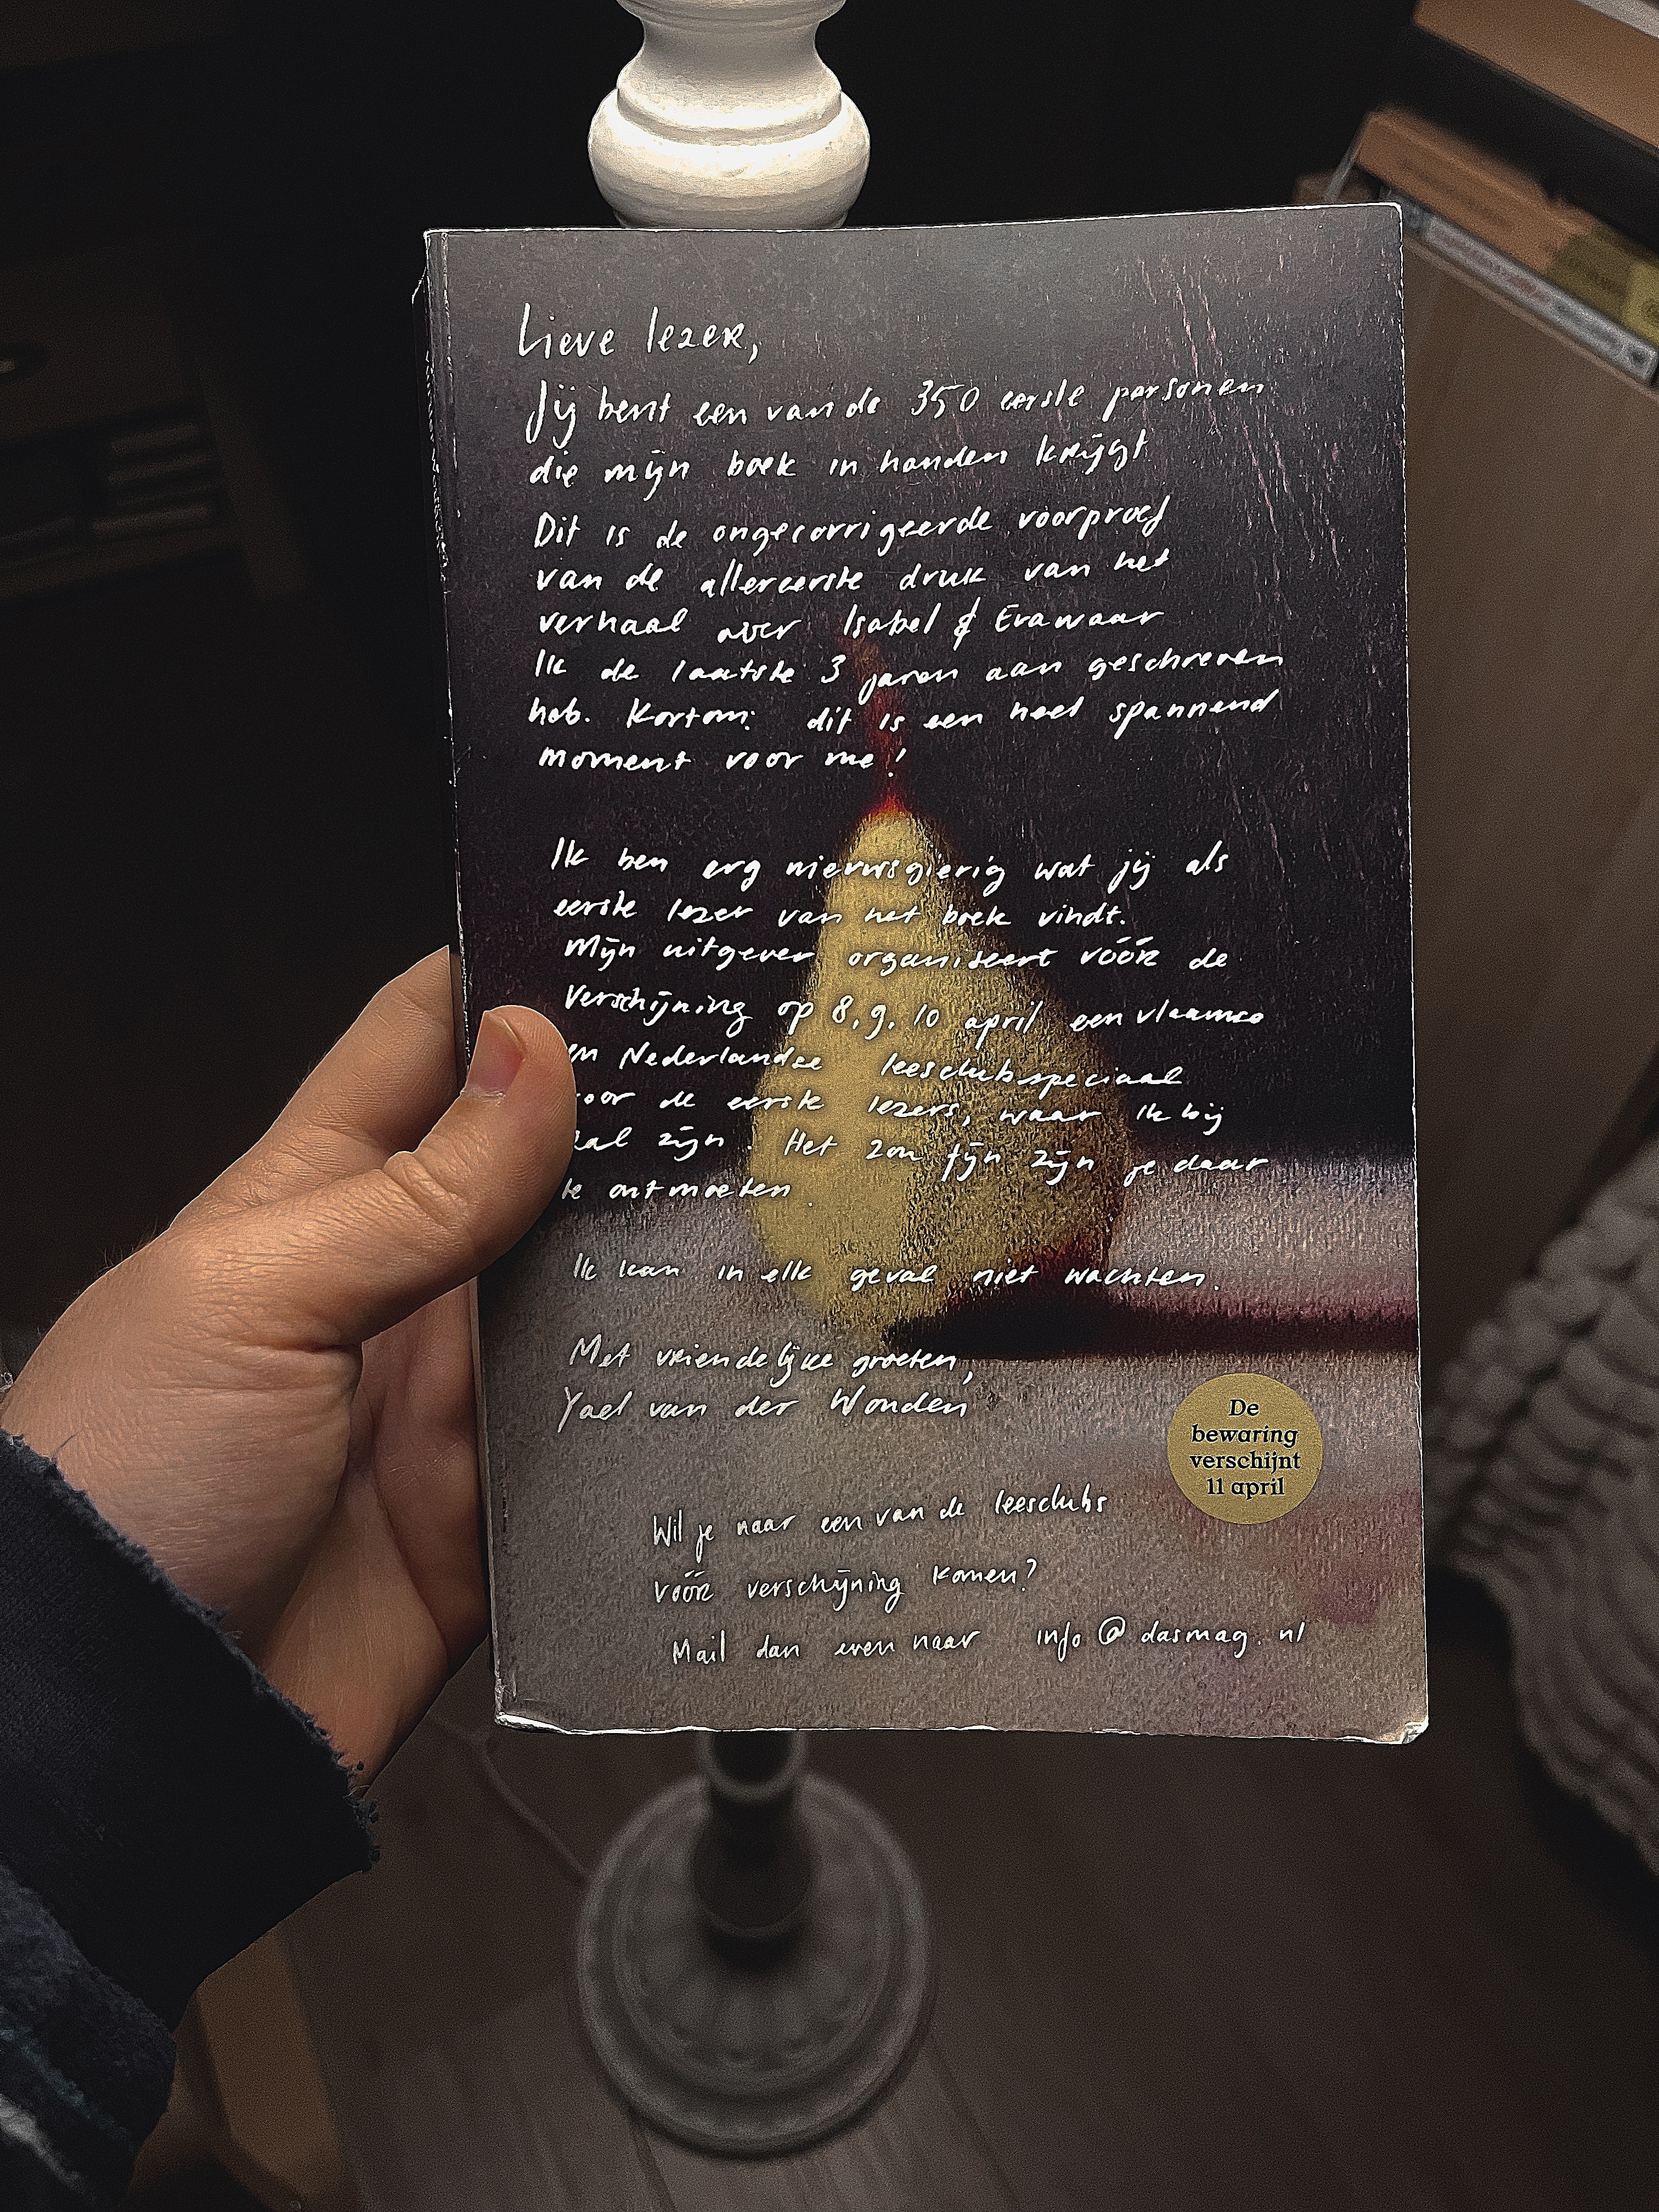 Lieve lezer,
Jij bent een van de 350 eerste personen
die mijn boek in handen krijgt.
Dit is de ongecorrigeerde voorproef
van de allereerste druk van het
verhaal over Isabel & Eva waar
Ik de laatste 3 jaren aan geschreven
heb. Kortom: dit is een heel spannend
moment voor me!
Ik ben erg nieuwsgierig wat jij als
eerste lezer van het boek vindt.
Mijn uitgever organiseert vóór de
verschijning op 8, 9, 10 april een vlaamse
en Nederlandse leesclubspeciaal
voor de eerste lezers, waar ik bij
zal zijn. Het zou fijn zijn je daar
te ontmoeten.
Ik kan in elk geval niet wachten.
Met vriendelijke groeten,
Yael van der Wouden
De
bewaring
verschijnt
11 april
Wil je naar een van de leesclubs
vóór verschijning komen?
Mail dan even naar info@dasmag.nl